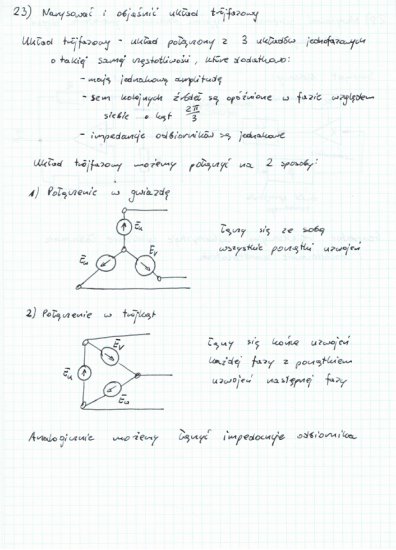 23) Narysować i objaśnić układ trójfazowy
Układ trójfazowy - układ połączony z 3 układów jednofazowych
o takiej samej częstotliwości, które dodatkowo:
- mają jednakową amplitudę
- sem kolejnych źródeł są opóźnione w fazie względem
siebie o kąt 2π/3
- impedancje odbiorników są jednakowe
Układ trójfazowy możemy połączyć na 2 sposoby:
1) Połączenie w gwiazdę
Eu
Ew
Ev
łączy się ze sobą
wszystkie początki uzwojeń
2) Połączenie w trójkąt
Ev
Eu
Ew
łączy się końce uzwojeń
każdej fazy z początkiem
uzwojeń następnej fazy
Analogicznie możemy łączyć impedancje odbiornika